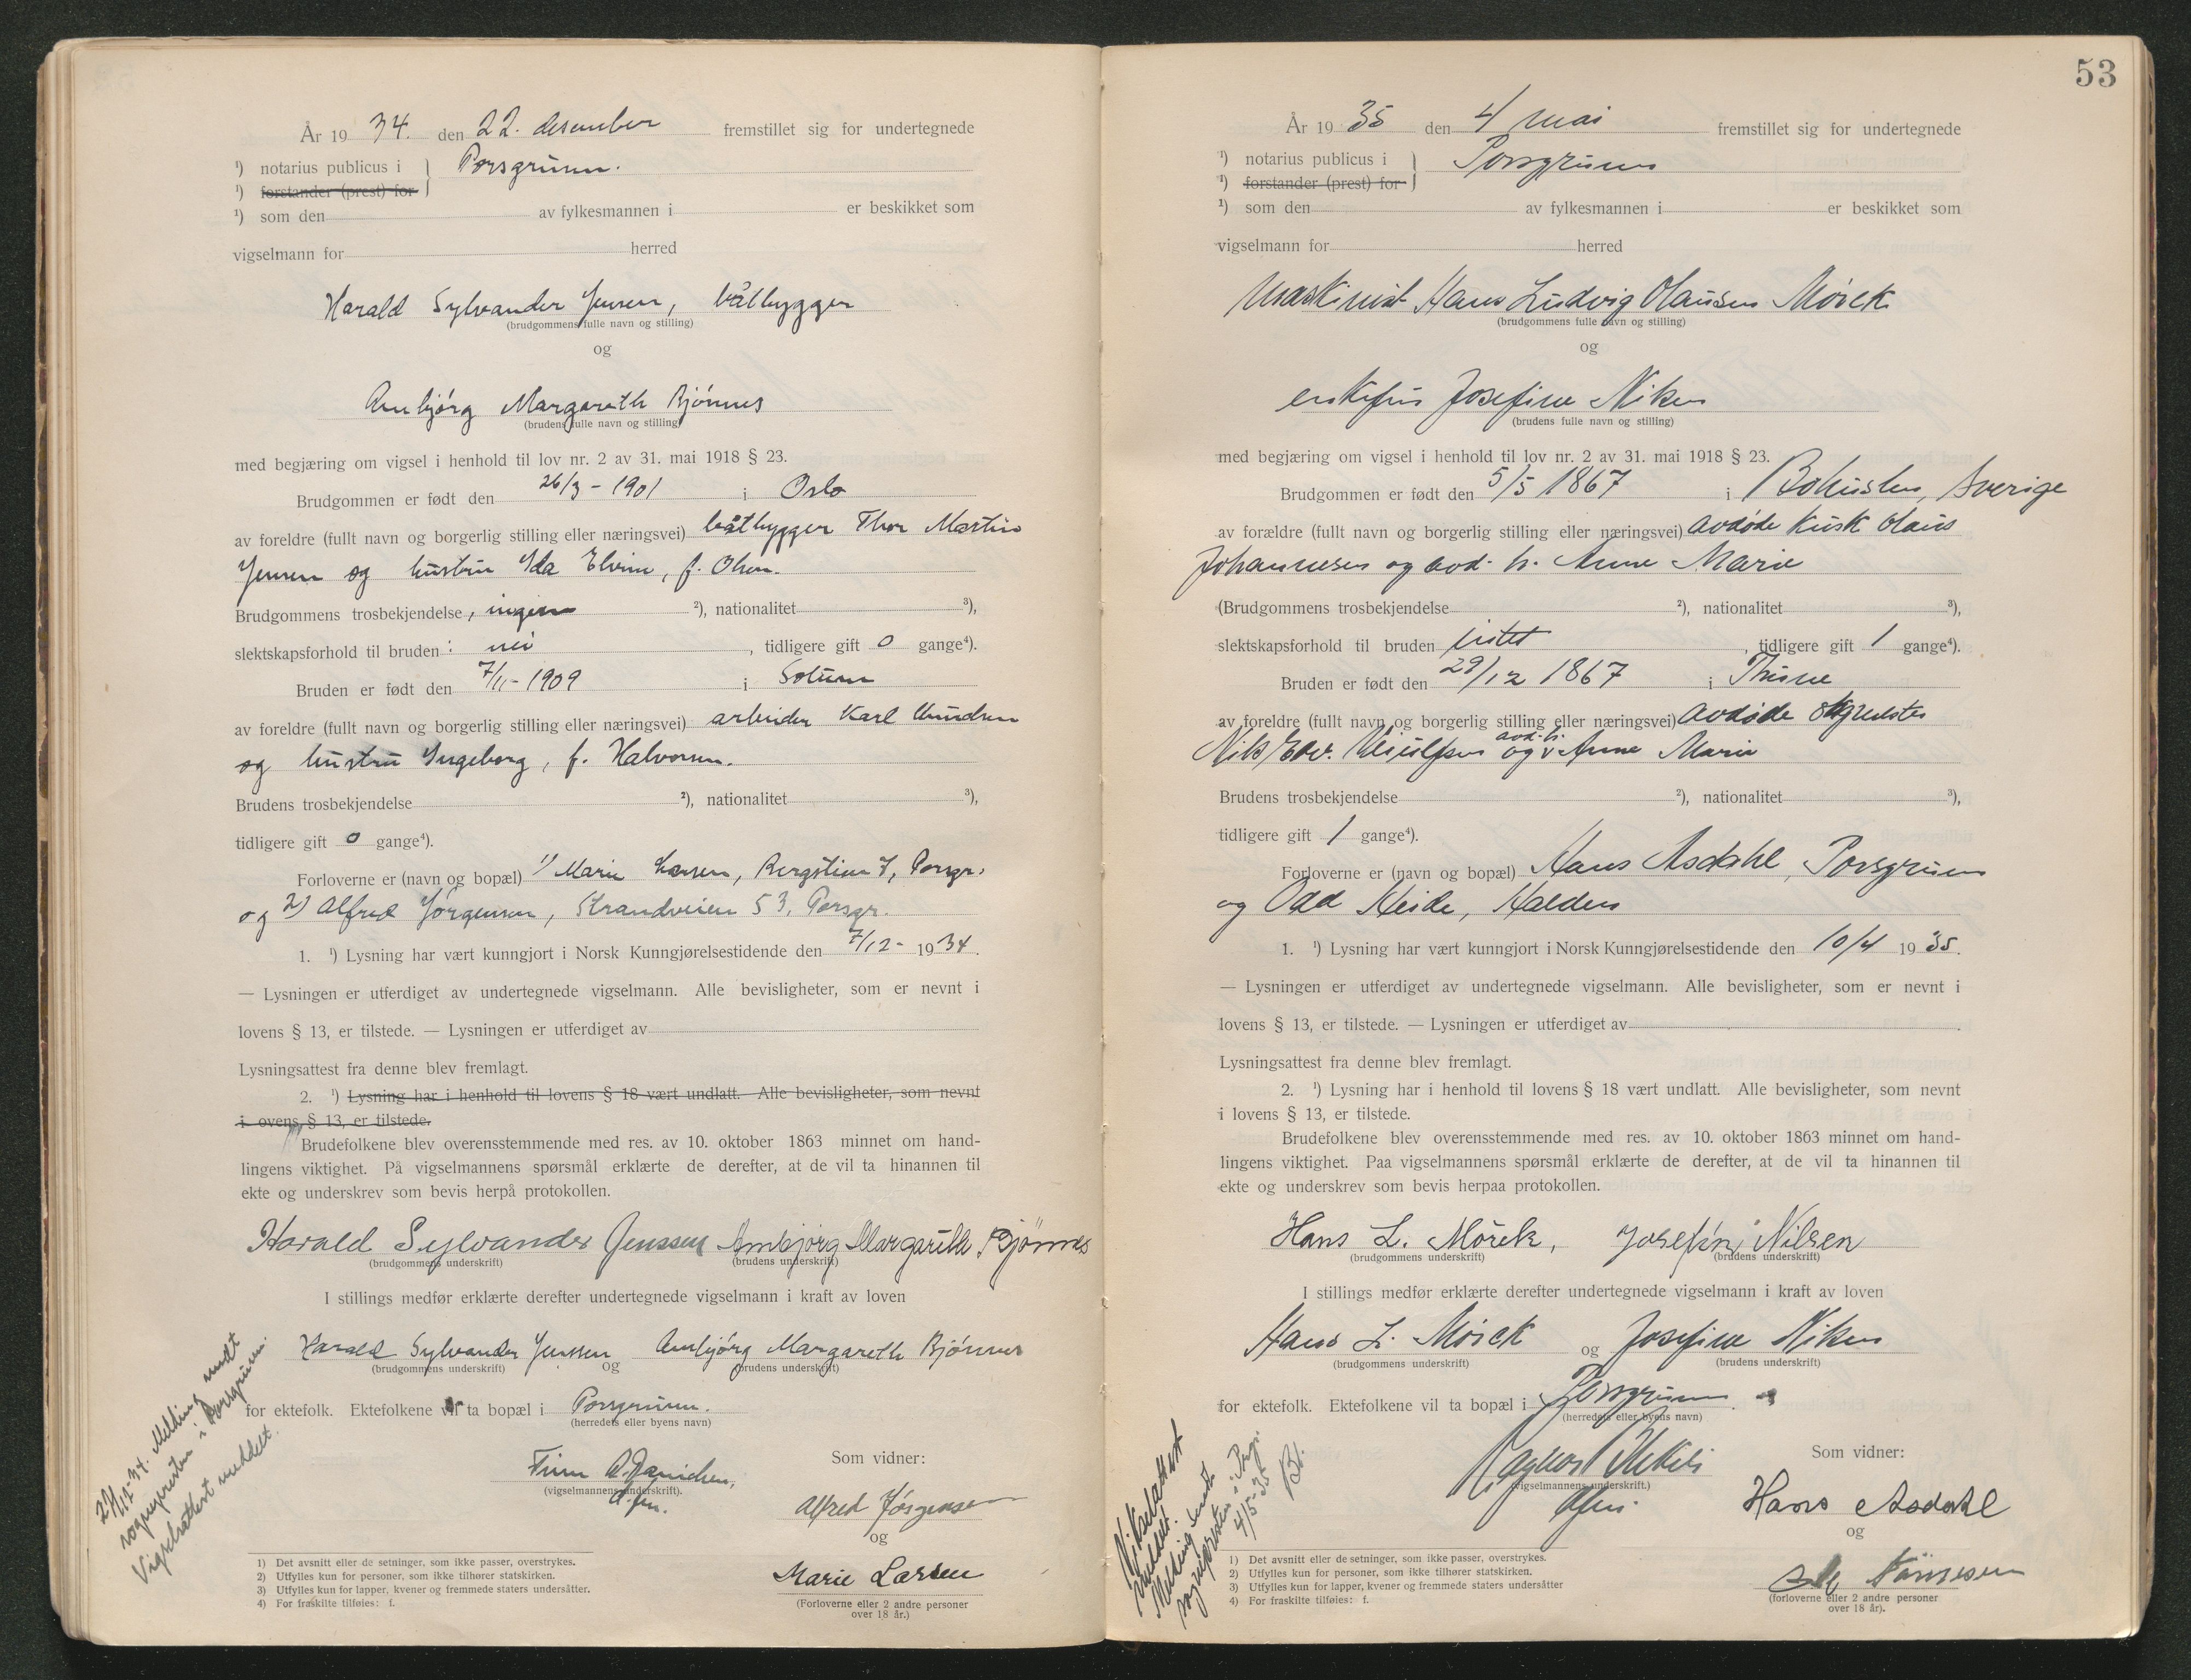 År 19 34. den 22. desember fremstillet sig for undertegnede
¹) notarius publicus i } Porsgrunn.
¹) forstander (prest) for
¹) som den av fylkesmannen i er beskikket som
vigselmann for herred
Harald Sylvander Jensen, båtbygger
(brudgommens fulle navn og stilling)
og
Ambjörg Margareth Bjönnes
(brudens fulle navn og stilling)
med begjæring om vigsel i henhold til lov nr. 2 av 31. mai 1918 § 23.
Brudgommen er født den 26/3 - 1901 i Oslo
av foreldre (fullt navn og borgerlig stilling eller næringsvei) båtbygger Thor Martin
Jensen og hustru Ida Elvine, f. Olsen.
Brudgommens trosbekjendelse, ingen ²), nationalitet ³),
slektskapsforhold til bruden: nei , tidligere gift 0 gange⁴).
Bruden er født den 7/11 - 1909 i Solum
av foreldre (fullt navn og borgerlig stilling eller næringsvei) arbeider Karl Amundsen
og hustru Ingeborg, f. Halvorsen.
Brudens trosbekjendelse ²), nationalitet ³),
tidligere gift 0 gange⁴).
Forloverne er (navn og bopæl) 1) Marie Larsen, Bergstien 7, Porsgr.
og 2) Alfred Jørgensen, Strandveien 53, Porsgr.
1. ¹) Lysning har vært kunngjort i Norsk Kunngjørelsestidende den 7/12 - 1934.
— Lysningen er utferdiget av undertegnede vigselmann. Alle bevisligheter, som er nevnt i
lovens § 13, er tilstede. — Lysningen er utferdiget av
Lysningsattest fra denne blev fremlagt.
2. ¹) Lysning har i henhold til lovens § 18 vært undlatt. Alle bevisligheter, som nevnt
i ovens § 13, er tilstede.
Brudefolkene blev overensstemmende med res. av 10. oktober 1863 minnet om hand-
lingens viktighet. På vigselmannens spørsmål erklærte de derefter, at de vil ta hinannen til
ekte og underskrev som bevis herpå protokollen.
Harald Sylvander Jenssen Ambjørg Margareth Bjönnes
(brudgommens underskrift) (brudens underskrift)
I stillings medfør erklærte derefter undertegnede vigselmann i kraft av loven
Harald Sylvander Jenssen og Ambjörg Margareth Bjönnes
(brudgommens underskrift) (brudens underskrift)
for ektefolk. Ektefolkene vil ta bopæl i Porsgrunn.
(herredets eller byens navn)
Som vidner:
Finn
(vigselmannens underskrift).
Alfred Jørgensen
og
Marie Larsen
(Forloverne eller 2 andre personer
over 18 år.)
22/12-34. Melding sendt
sognepresten i Porsgrunn
Vigselsattest meddelt.
1) Det avsnitt eller de setninger, som ikke passer, overstrykes.
2) Utfylles kun for personer, som ikke tilhører statskirken.
3) Utfylles kun for lapper, kvener og fremmede staters undersåtter.
4) For fraskilte tilføies: f.
53
År 19 35 den 4 mai fremstillet sig for undertegnede
¹) notarius publicus i } Porsgrunn
¹) forstander (prest) for
¹) som den av fylkesmannen i er beskikket som
vigselmann for herred
Maskinist Hans Ludvig Olausen Mörck
(brudgommens fulle navn og stilling)
og
enkefru Josefine Nilsen
(brudens fulle navn og stilling)
med begjæring om vigsel i henhold til lov nr. 2 av 31. mai 1918 § 23.
Brudgommen er født den 5/5 1867 i Bohuslen, Sverige
av forældre (fullt navn og borgerlig stilling eller næringsvei) avdøde kusk Olaus
Johannesen og avd. h. Anne Marie
(Brudgommens trosbekjendelse ²), nationalitet ³),
slektskapsforhold til bruden intet , tidligere gift 1 gange⁴).
Bruden er født den 29/12 1867 i
av foreldre (fullt navn og borgerlig stilling eller næringsvei) avdøde
og avd. h. Anne Marie
Brudens trosbekjendelse ²), nationalitet ³),
tidligere gift 1 gange⁴).
Forloverne er (navn og bopæl) Hans Asdahl, Porsgrunn
og Odd Heide, Halden
1. ¹) Lysning har vært kunngjort i Norsk Kunngjørelsestidende den 10/4 19 35.
— Lysningen er utferdiget av undertegnede vigselmann. Alle bevisligheter, som er nevnt i
lovens § 13, er tilstede. — Lysningen er utferdiget av
Lysningsattest fra denne blev fremlagt.
2. ¹) Lysning har i henhold til lovens § 18 vært undlatt. Alle bevisligheter, som nevnt
i lovens § 13, er tilstede.
Brudefolkene blev overensstemmende med res. av 10. oktober 1863 minnet om hand-
lingens viktighet. Paa vigselmannens spørsmål erklærte de derefter, at de vil ta hinannen til
ekte og underskrev som bevis herpaa protokollen.
Hans L. Mörck, Josefine Nilsen
(brudgommens underskrift) (brudens underskrift)
I stillings medfør erklærte derefter undertegnede vigselmann i kraft av loven
Hans L. Mörck og Josefine Nilsen
(brudgommens underskrift) (brudens underskrift)
for ektefolk. Ektefolkene vil ta bopæl i Porsgrunn.
(herredets eller byens navn)
Som vidner:
(vigselmannens underskrift.)
Hans Asdahl
og
(forloverne eller 2 andre personer
over 18 år).
Vikselattest
meddelt.
Melding sendt
sognepresten i Porsgr.
4/5-35
1) Det avsnitt eller de setninger, som ikke passer, overstrykes.
2) Utfylles kun for personer, som ikke tilhører statskirken.
3) Utfylles kun for lapper, kvener og fremmede staters undersåtter
4) For fraskilte tilføies: f.